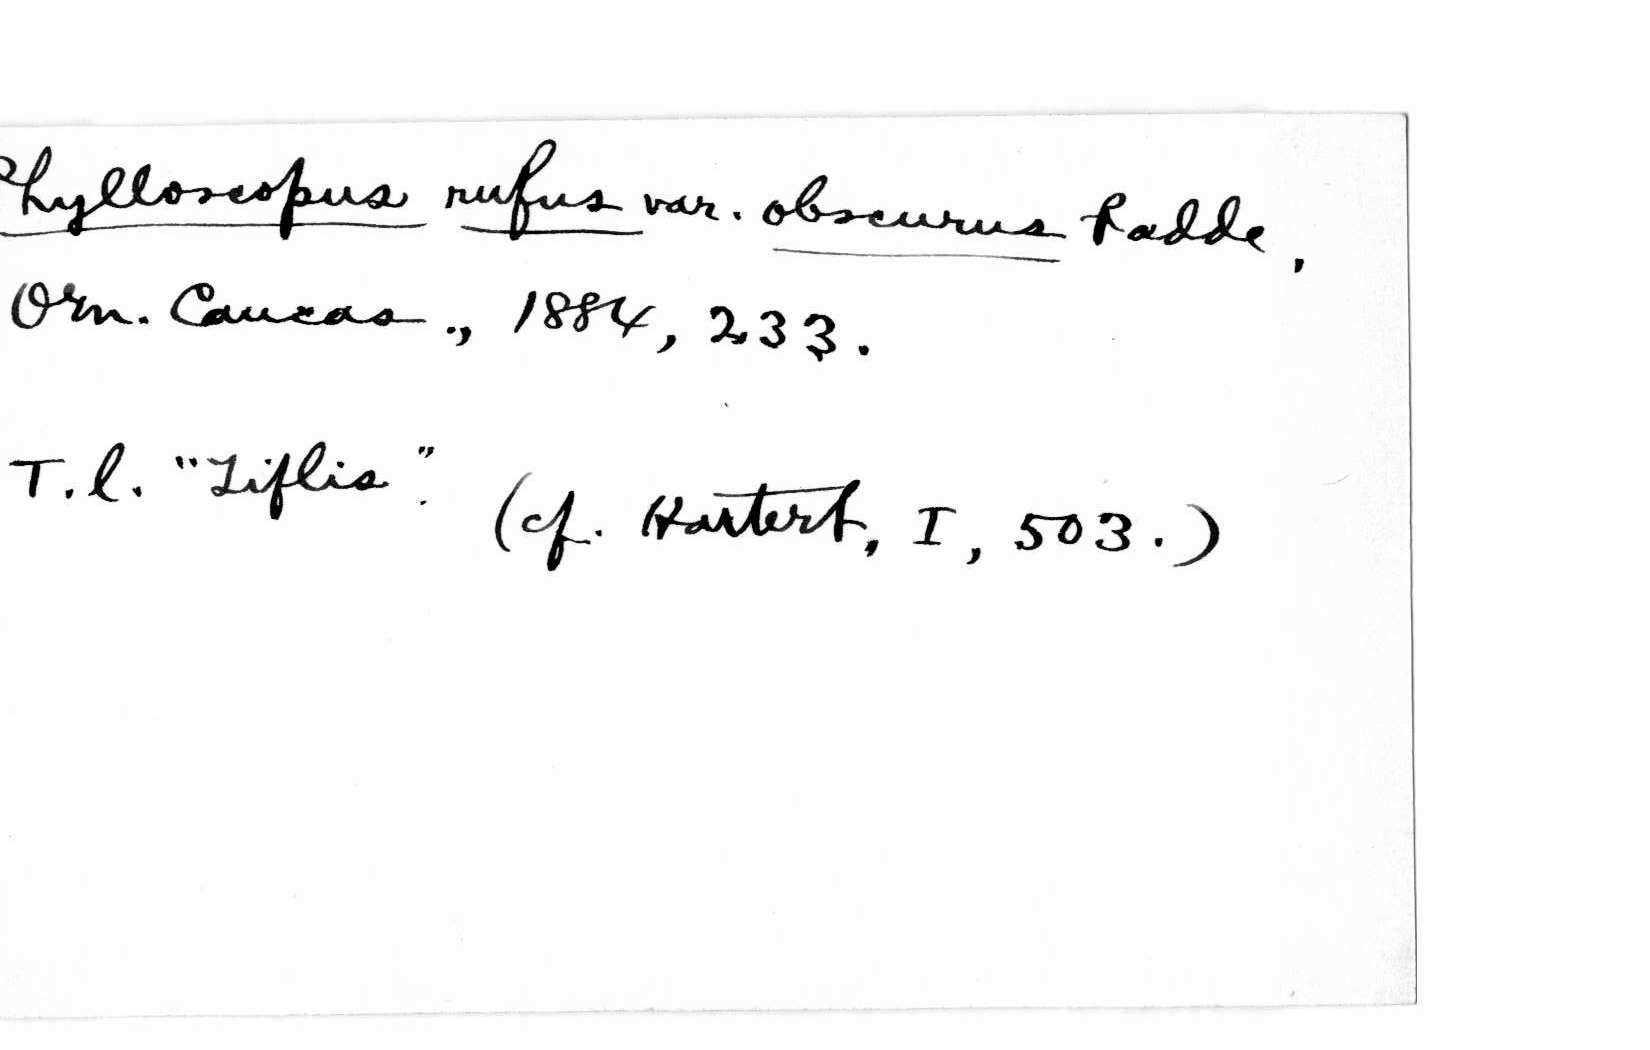 Phylloscopus rufus var. obscurus Radde,
Orn. Caucas., 1884, 233.
T.l. "Tiflis".
(cf. Hartert, I, 503.)